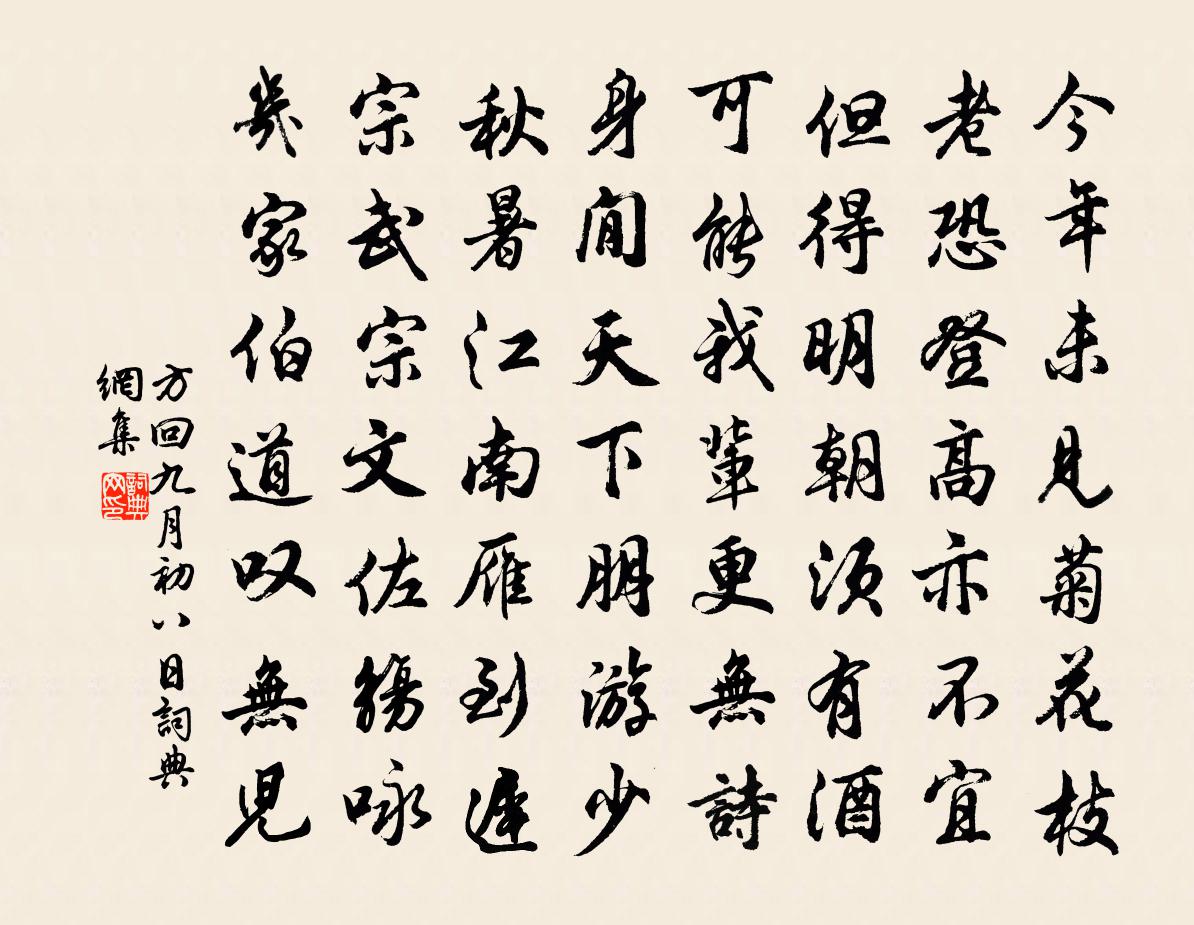 今年未見菊花枝
老恐登高亦不宜
但得明朝須有酒
可能我輩更無詩
身閒天下朋游少
秋暑江南雁到遲
宗武宗文佐觴咏
幾家伯道叹無児
方回九月初八日詞典
網集
詞典网印